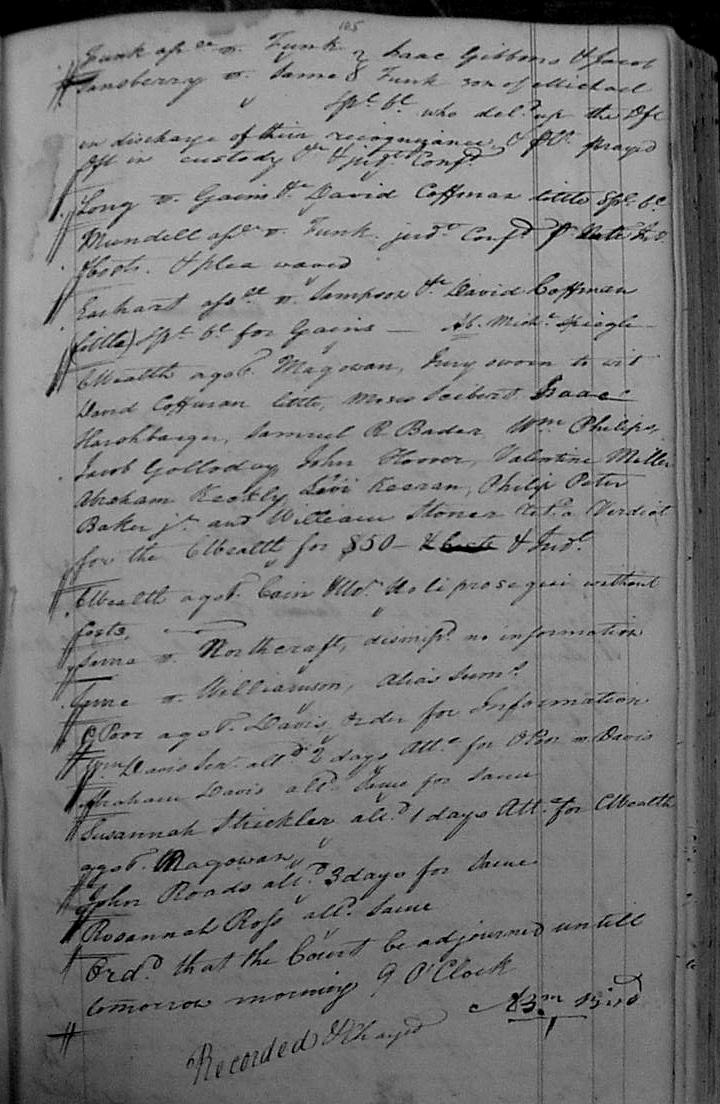 105
Funk ass.ee vs. Funk } Isaac Gibbons & Jacob
Sansberry vs. Same } Funk son of Michael
Spl. bl. who deld. up the Dft
in discharge of their recognizance, & prayed
Dft in custody &c & Confd.
Long vs. Gains &c David Coffman little Spl. bl.
Mundell assee vs. Funk. judt. Confd.
Costs. & plea waved
Earhart assee vs. Sampson &c David Coffman
little) Spl. bl. for Gains — Ab. Michl. Spiegle
CWealth agst. Magowan, Jury sworn to wit
David Coffman little, Moses Seibert, Isaac
Harshbarger, Samuel R. Bader, Wm Philips,
Jacob Golloday, John Hoover, Valentine Miller
Abraham Keekly, Levi Keeran, Philip Peter
Baker jr. and William Stoner retd. a Verdict
for the CWealth for $50 — & Costs & Judt.
CWealth agst. Cain Noli prosequi without
Costs.
Same vs. Northcraft, dismissd. no information
Same vs. Williamson, alias Sums.
OPoor agst. Davis, order for Information
Wm. Davis Senr. alld. 2 days Atte. for OPoor vs. Davis
Abraham Davis alld. Same for Same
Susannah Strickler alld. 1 days Atte. for CWealth
agst. Magowan
John Roads alld. 3 days for Same
Rosannah Ross alld. Same
Ord. that the Court be adjourned untill
tomorrow morning 9 O'Clock
Am Bird
Recorded & Charged